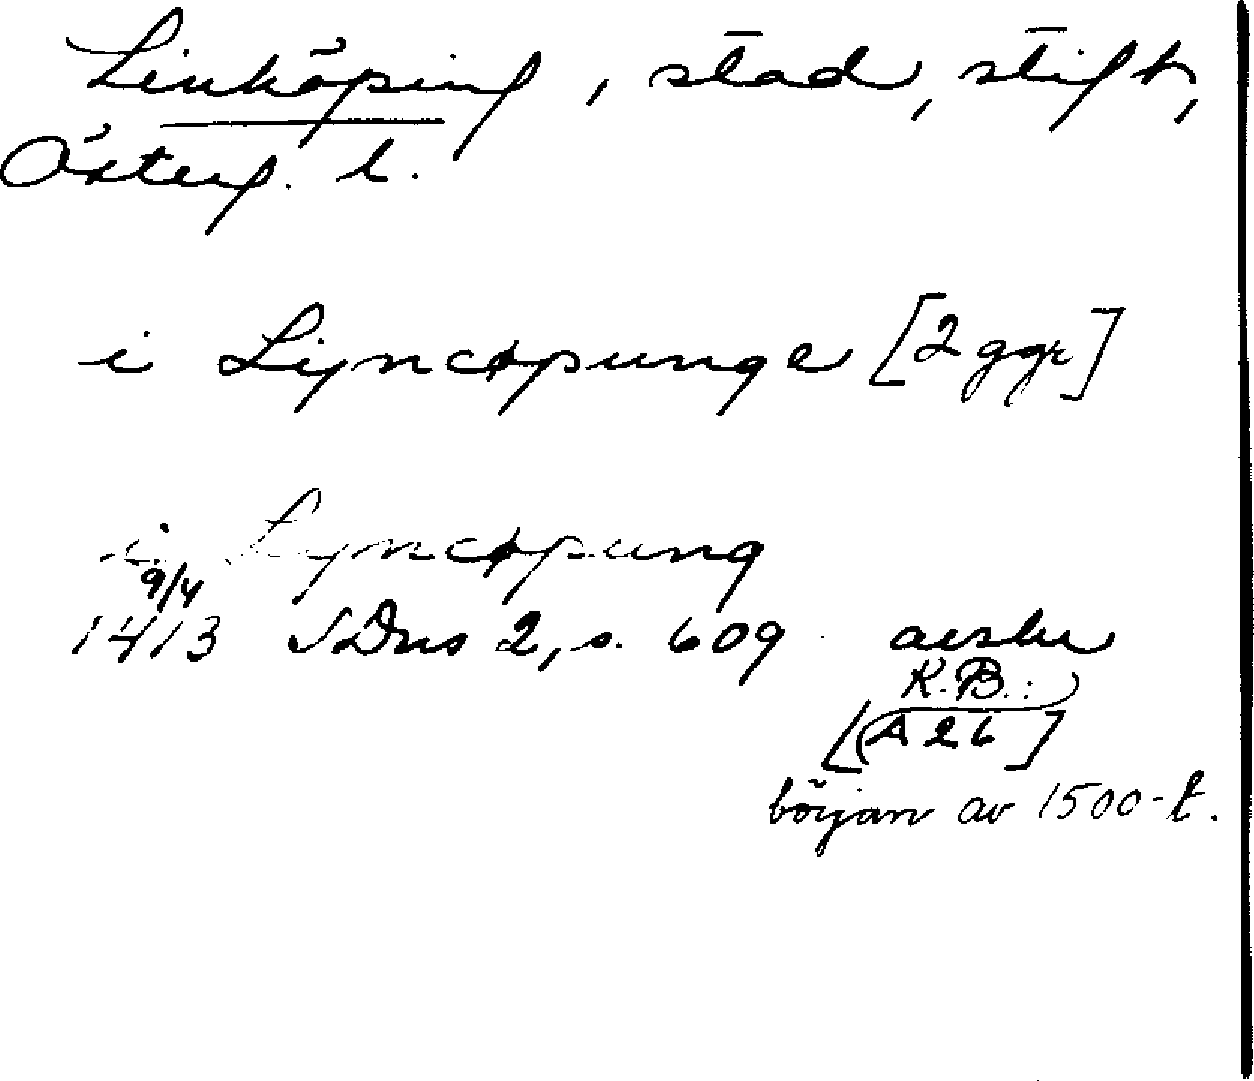 Linköping, stad, stift,
Österg. l.
i Lyncøpunge [2 ggr]
i Lyncøpung
9/4
1413 SDns 2, s. 609 avskr
K.B.:
[A 26]
början av 1500-t.